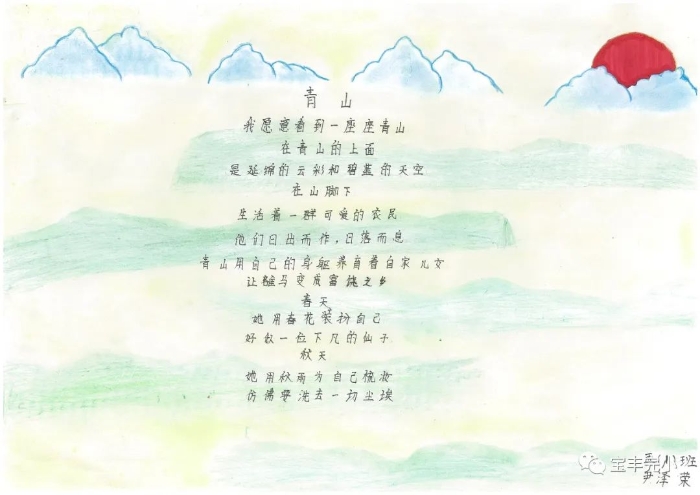 青 山
我愿意看到一座座青山
在青山的上面
是延绵的云彩和碧蓝的天空
在山脚下
生活着一群可爱的农民
他们日出而作，日落而息
青山用自己的身躯养育着自家儿女
让 马变成富饶之乡
春天
她用春花装扮自己
好似一位下凡的仙子
秋天
她用秋雨为自己梳妆
仿佛要洗去一切尘埃
五(1)班
宝丰完小
尹泽荣